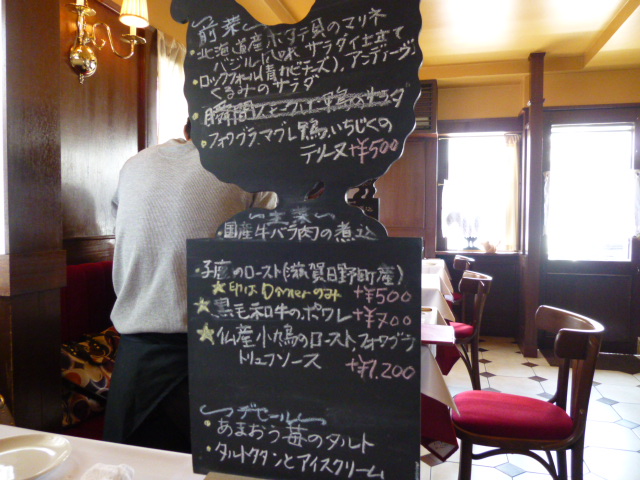 前菜
・北海道産ホタテ貝のマリネ
バジル風味 サラダ仕立て
・ロックフォール(青カビチーズ)、アンディーヴ
くるみのサラダ
・瞬間スモークした鴨のサラダ
・フォワグラ、マグレ鴨、いちじくの
テリーヌ +¥500
主菜
・国産牛バラ肉の煮込
・子鹿のロースト(滋賀日野町産)
★印はDinnerのみ +¥500
★黒毛和牛のポワレ +¥700
★仏産小鳩のロースト フォワグラ
トリュフソース +¥1,200
デセール
・あまおう苺のタルト
・タルトタタンとアイスクリーム